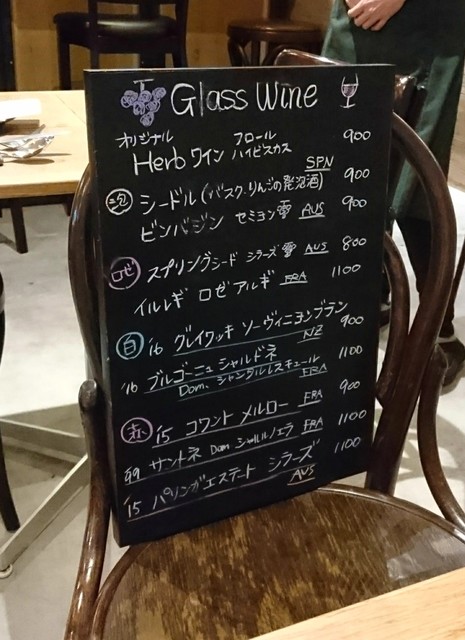 Glass Wine
オリジナル フロール 900
Herb ワイン ハイビスカス
SPN
泡 シードル(バスク・りんごの発泡酒) 900
ビンバジン セミヨン AUS 900
ロゼ スプリングシード シラーズ AUS 800
イルレギ ロゼ アルギ FRA 1100
白 '16 グレイワッキ ソーヴィニヨンブラン 900
NZ
'16 ブルゴーニュ シャルドネ 1100
Dom. シャンタルレスキュール
FRA
赤 '15 コワント メルロー FRA 900
99 サントネ Dom FRA 1100
'15 パリンガエステート シラーズ 1100
AUS